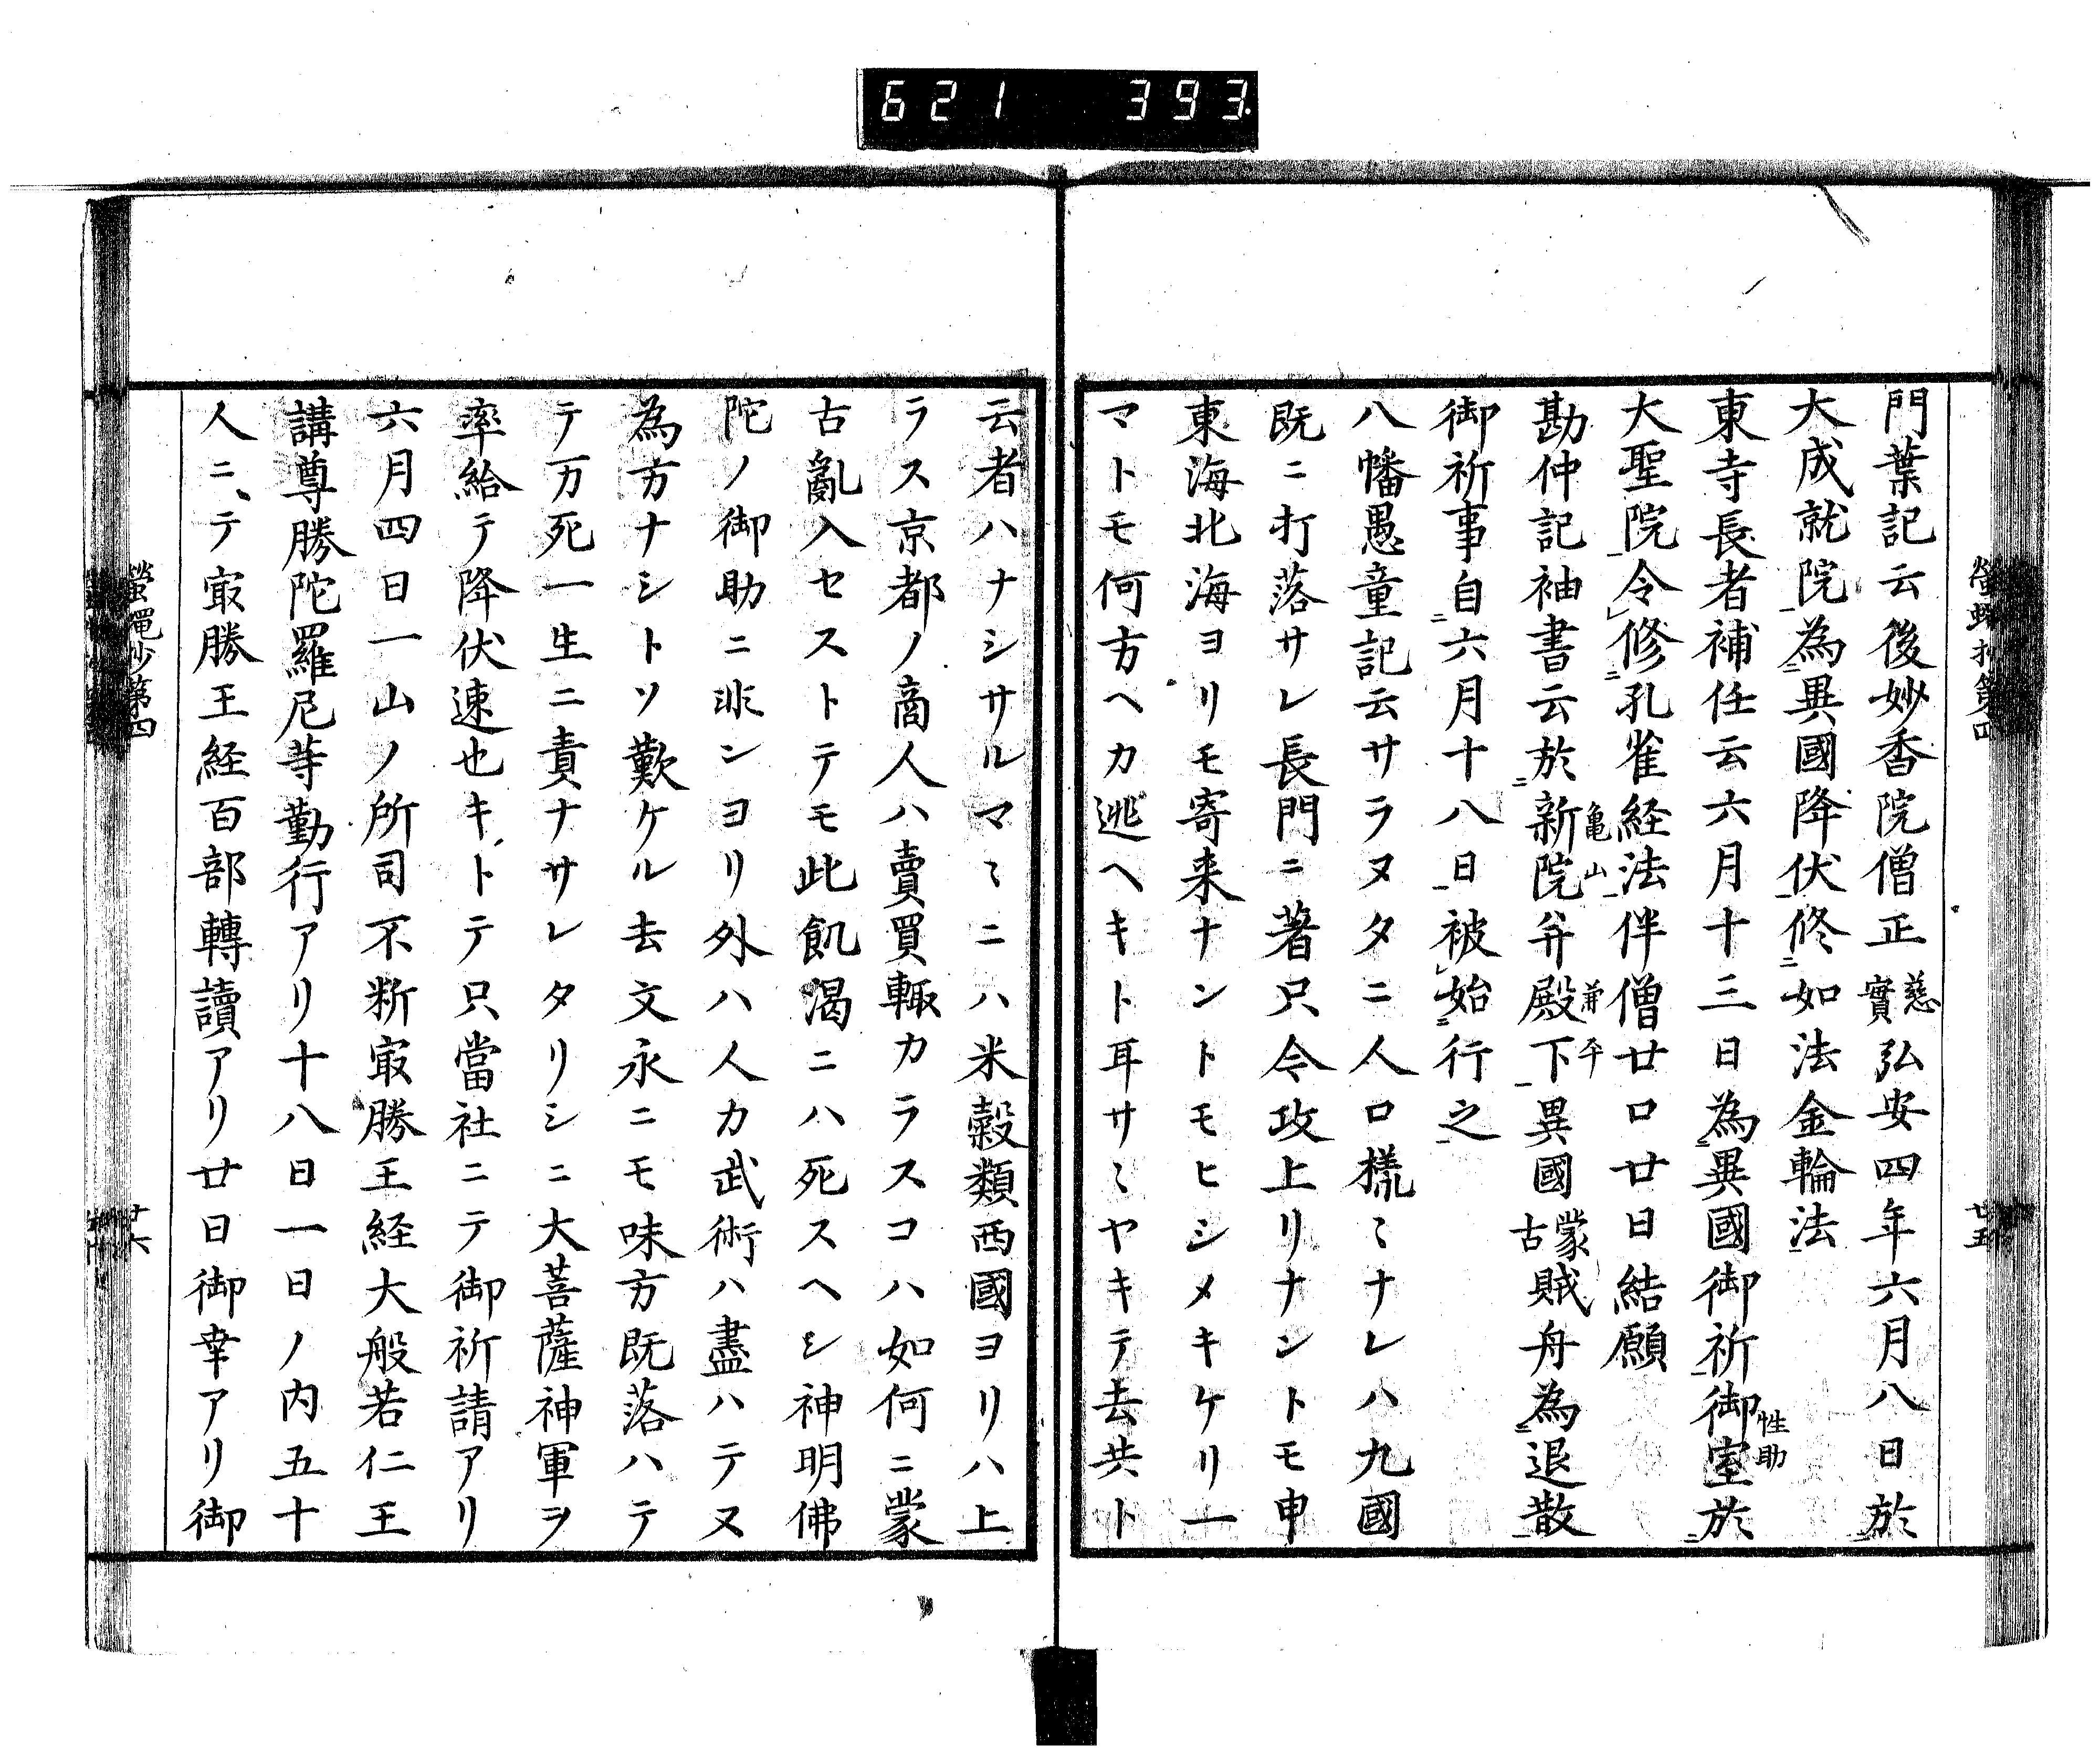 621 393
螢蠅抄第四
廿五
門葉記云後妙香院僧正慈實弘安四年六月八日於
大成就院為異國降伏修如法金輪法
東寺長者補任云六月十三日為異國御祈御室性助於
大聖院令修孔雀経法伴僧廿口廿日結願
勘仲記袖書云於新院亀山并殿下兼平異國蒙古賊舟為退散
御祈事自六月十八日被始行之
八幡愚童記云サラヌタニ人口樣〻ナレハ九國
既ニ打落サレ長門ニ著只今攻上リナントモ申
東海北海ヨリモ寄来ナントモヒシメキケリ一
マトモ何方ヘカ逃ヘキト耳サミヤキテ去共ト
云者ハナシサルマヽニハ米穀類西國ヨリハ上
ラス京都ノ商人ハ賣買輙カラスコハ如何ニ蒙
古亂入セストテモ此飢渇ニハ死スヘシ神明佛
陀ノ御助ニ非ンヨリ外ハ人カ武術ハ盡ハテヌ
為方ナシトソ歎ケル去文永ニモ味方既落ハテ
テ万死一生ニ責ナサレタリシニ大菩薩神軍ヲ
率給テ降伏速也キトテ只當社ニテ御祈請アリ
六月四日一山ノ所司不断㝡勝王経大般若仁王
講尊勝陀羅尼䓁勤行アリ十八日一日ノ内五十
人ニテ㝡勝王経百部轉讀アリ廿日御幸アリ御
螢蠅抄第四
廿六